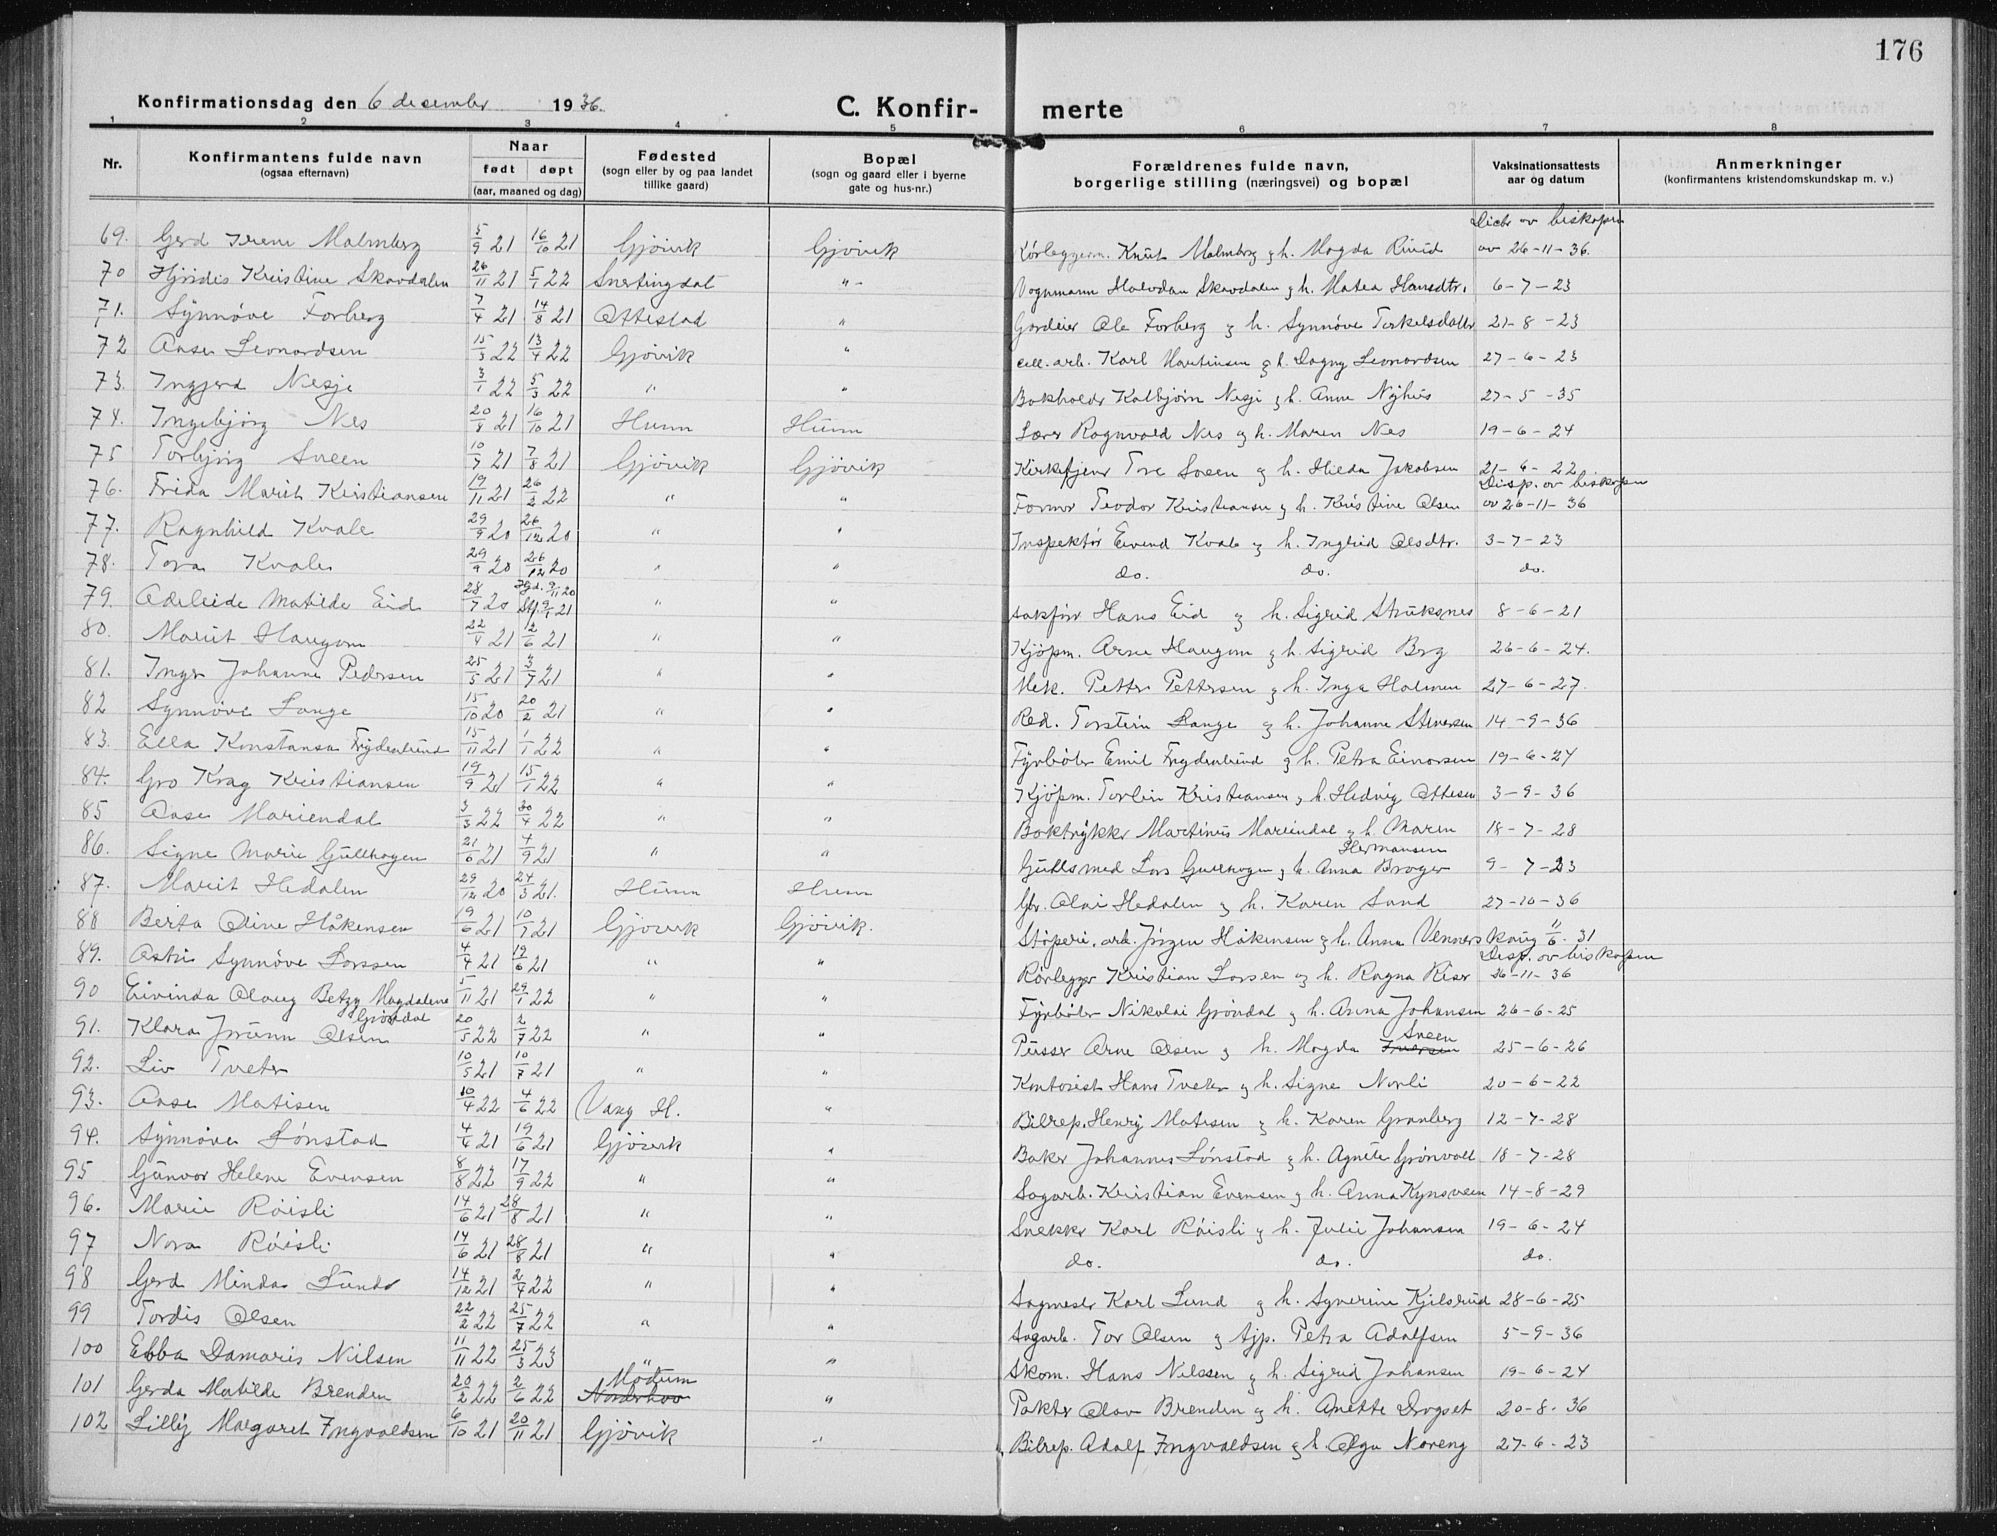 176
Konfirmationsdag den 6 desember 1936.
C. Konfir- merte
1 2 3 4 5 6 7 8
Nr. Konfirmantens fulde navn (ogsaa efternavn) Naar født døpt (aar, maaned og dag) Fødested (sogn eller by og paa landet tillike gaard) Bopæl (sogn og gaard eller i byerne gate og hus-nr.) Forældrenes fulde navn, borgerlige stilling (næringsvei) og bopæl Vaksinationsattests aar og datum Anmerkninger (konfirmantens kristendomskundskap m. v.)
av biskopen
69. Gerd Irene Malmberg 5/9 21 16/10 21 Gjøvik Gjøvik Knut Malmberg og h. Magda Ruud av 26-11-36.
70 Hjördis Kristine Skavdalen 26/11 21 5/1 22 Snertingdal " - Vognmann Halvdan Skavdalen og h. Matea Hansdtr. 6-7-23
71. Synnøve Forberg 7/4 21 14/8 21 Ottestad " Gardeier Ole Forberg og h. Synnøve Torkelsdatter 21-8-23
72 Aase Leonardsen 15/3 22 13/4 22 Gjøvik " cell. arb. Karl Martinsen og h. Dagny Leonardsen 27-6-23
73. Ingjerd Nesje 3/1 22 5/3 22 " " Bokholder Kolbjørn Nesje og h. Anne Nyhus 27-5-35
74. Ingebjørg Nes 20/8 21 16/10 21 Hunn Hunn Lærer Ragnvald Nes og h. Maren Nes 19-6-24
75 Torbjørg Sveen 10/7 21 7/8 21 Gjøvik Gjøvik Kirketjener Tore Sveen og h. Hilda Jakobsen 21-6-22.
Disp. av biskopen
76. Frida Marit Kristiansen 19/11 21 26/2 22 " " Former Teodor Kristiansen og h. Kristine Olsen av 26-11-36
77. Ragnhild Kvale 29/9 20 26/12 20 " " Inspektør Eivind Kvale og h. Ingrid Olsdtr. 3-7-23
78. Tora Kvale 29/9 20 26/12 20 " " do. do. do.
79. Adeleide Matilde Eid 28/7 20 Hjd. 9/11 20 Stf. 9/1 21 " " sakfører Hans Eid og h. Sigrid Struksnes 8-6-21
80. Marit Haugom 22/4 21 2/6 21 " " Kjøpm. Arne Haugom og h. Sigrid Berg 26-6-24.
81. Inger Johanne Pedersen 25/5 21 3/7 21 " " Mek. Petter Pettersen og h. Inga Holmen 27-6-27.
82 Synnøve Lange 15/10 20 20/2 21 " " Red. Torstein Lange og h. Johanne Steversen 14-9-36
83. Ella Konstansa Frydenlund 15/11 21 1/1 22 " " Fyrbøter Emil Frydenlund og h. Petra Einarsen 19-6-24
84. Gro Krag Kristiansen 19/9 21 15/1 22 " " Kjøpm. Torlin Kristiansen og h. Hedvig Ottesen 3-9-36
85 Aase Mariendal 3/3 22 30/4 22 " " Boktrykker Martinus Mariendal og h. Maren Hermansen 18-7-28
86. Signe Marie Gullhogen 21/6 21 4/9 21 " " Gullsmed Lars Gullhogen og h. Anna Broger 9-7-23
87. Marit Hedalen 29/12 20 24/3 21. Hunn Hunn Gbr. Olai Hedalen og h. Karen Sand 27-10-36
88 Berta Oline Håkensen 19/6 21 10/7 21 Gjøvik Gjøvik. Støperi. arb. Jørgen Håkensen og h. Anna Vennerskaug 11/6. 31
Disp. av biskopen
89. Astri Synnøve Larssen 4/4 21 19/6 21 " " Rørlegger Kristian Larsen og h. Ragna Riser 26-11-36
90 Eivinda Olaug Betzy Magdalene Grøndal 5/11 21 29/1 22 " " Fyrbøter Nikolai Grøndal og h. Anna Johansen 26-6-25
91. Klara Jorunn Olsen 20/5 22 2/7 22 " " Pusser Arne Olsen og h. Magda Iversen Sveen 25-6-26
92. Liv Tveter 10/5 21 10/7 21 " " Kontorist Hans Tveter og h. Signe Norli 20-6-22
93. Aase Matisen 10/4 22 4/6 22 Vang H. " Bilrep. Henry Matisen og h. Karen Granberg 12-7-28
94. Synnøve Lønstad 4/4 21 19/6 21 Gjøvik " Baker Johannes Lønstad og h. Agnete Grønvoll 18-7-28
95 Gunvor Helene Evensen 8/8 22 17/9 22 " " Sagarb. Kristian Evensen og h. Anna Kynsveen 14-8-29
96. Marie Røisli 14/6 21 28/8 21 " " Snekker Karl Røisli og h. Julie Johansen 19-6-24
97 Nora Røisli 14/6 21 28/8 21 " " do. do. do.
98 Gerd Minda Lunde 14/12 21 2/4 22 " " Sagmester Karl Lund og h. Syverine Kjelsrud 28-6-25
99 Tordis Olsen 22/2 22 25/7 22 " " Sagarb. Tor Olsen og hjp. Petra Adolfsen 5-9-36
100 Ebba Damaris Nilsen 11/11 22 25/3 23 " " Skom. Hans Nilssen og h. Sigrid Johansen 19-6-24
101 Gerda Matilde Brenden 20/2 22 2/6 22 Norderhov Modum " Pakter Olav Brenden og h. Anette Drogset 20-8-36
102 Lilly Margaret Ingvaldsen 6/10 21 20/11 21 Gjøvik " Bilrep. Adolf Ingvaldsen og h. Olga Noreng 27-6-23